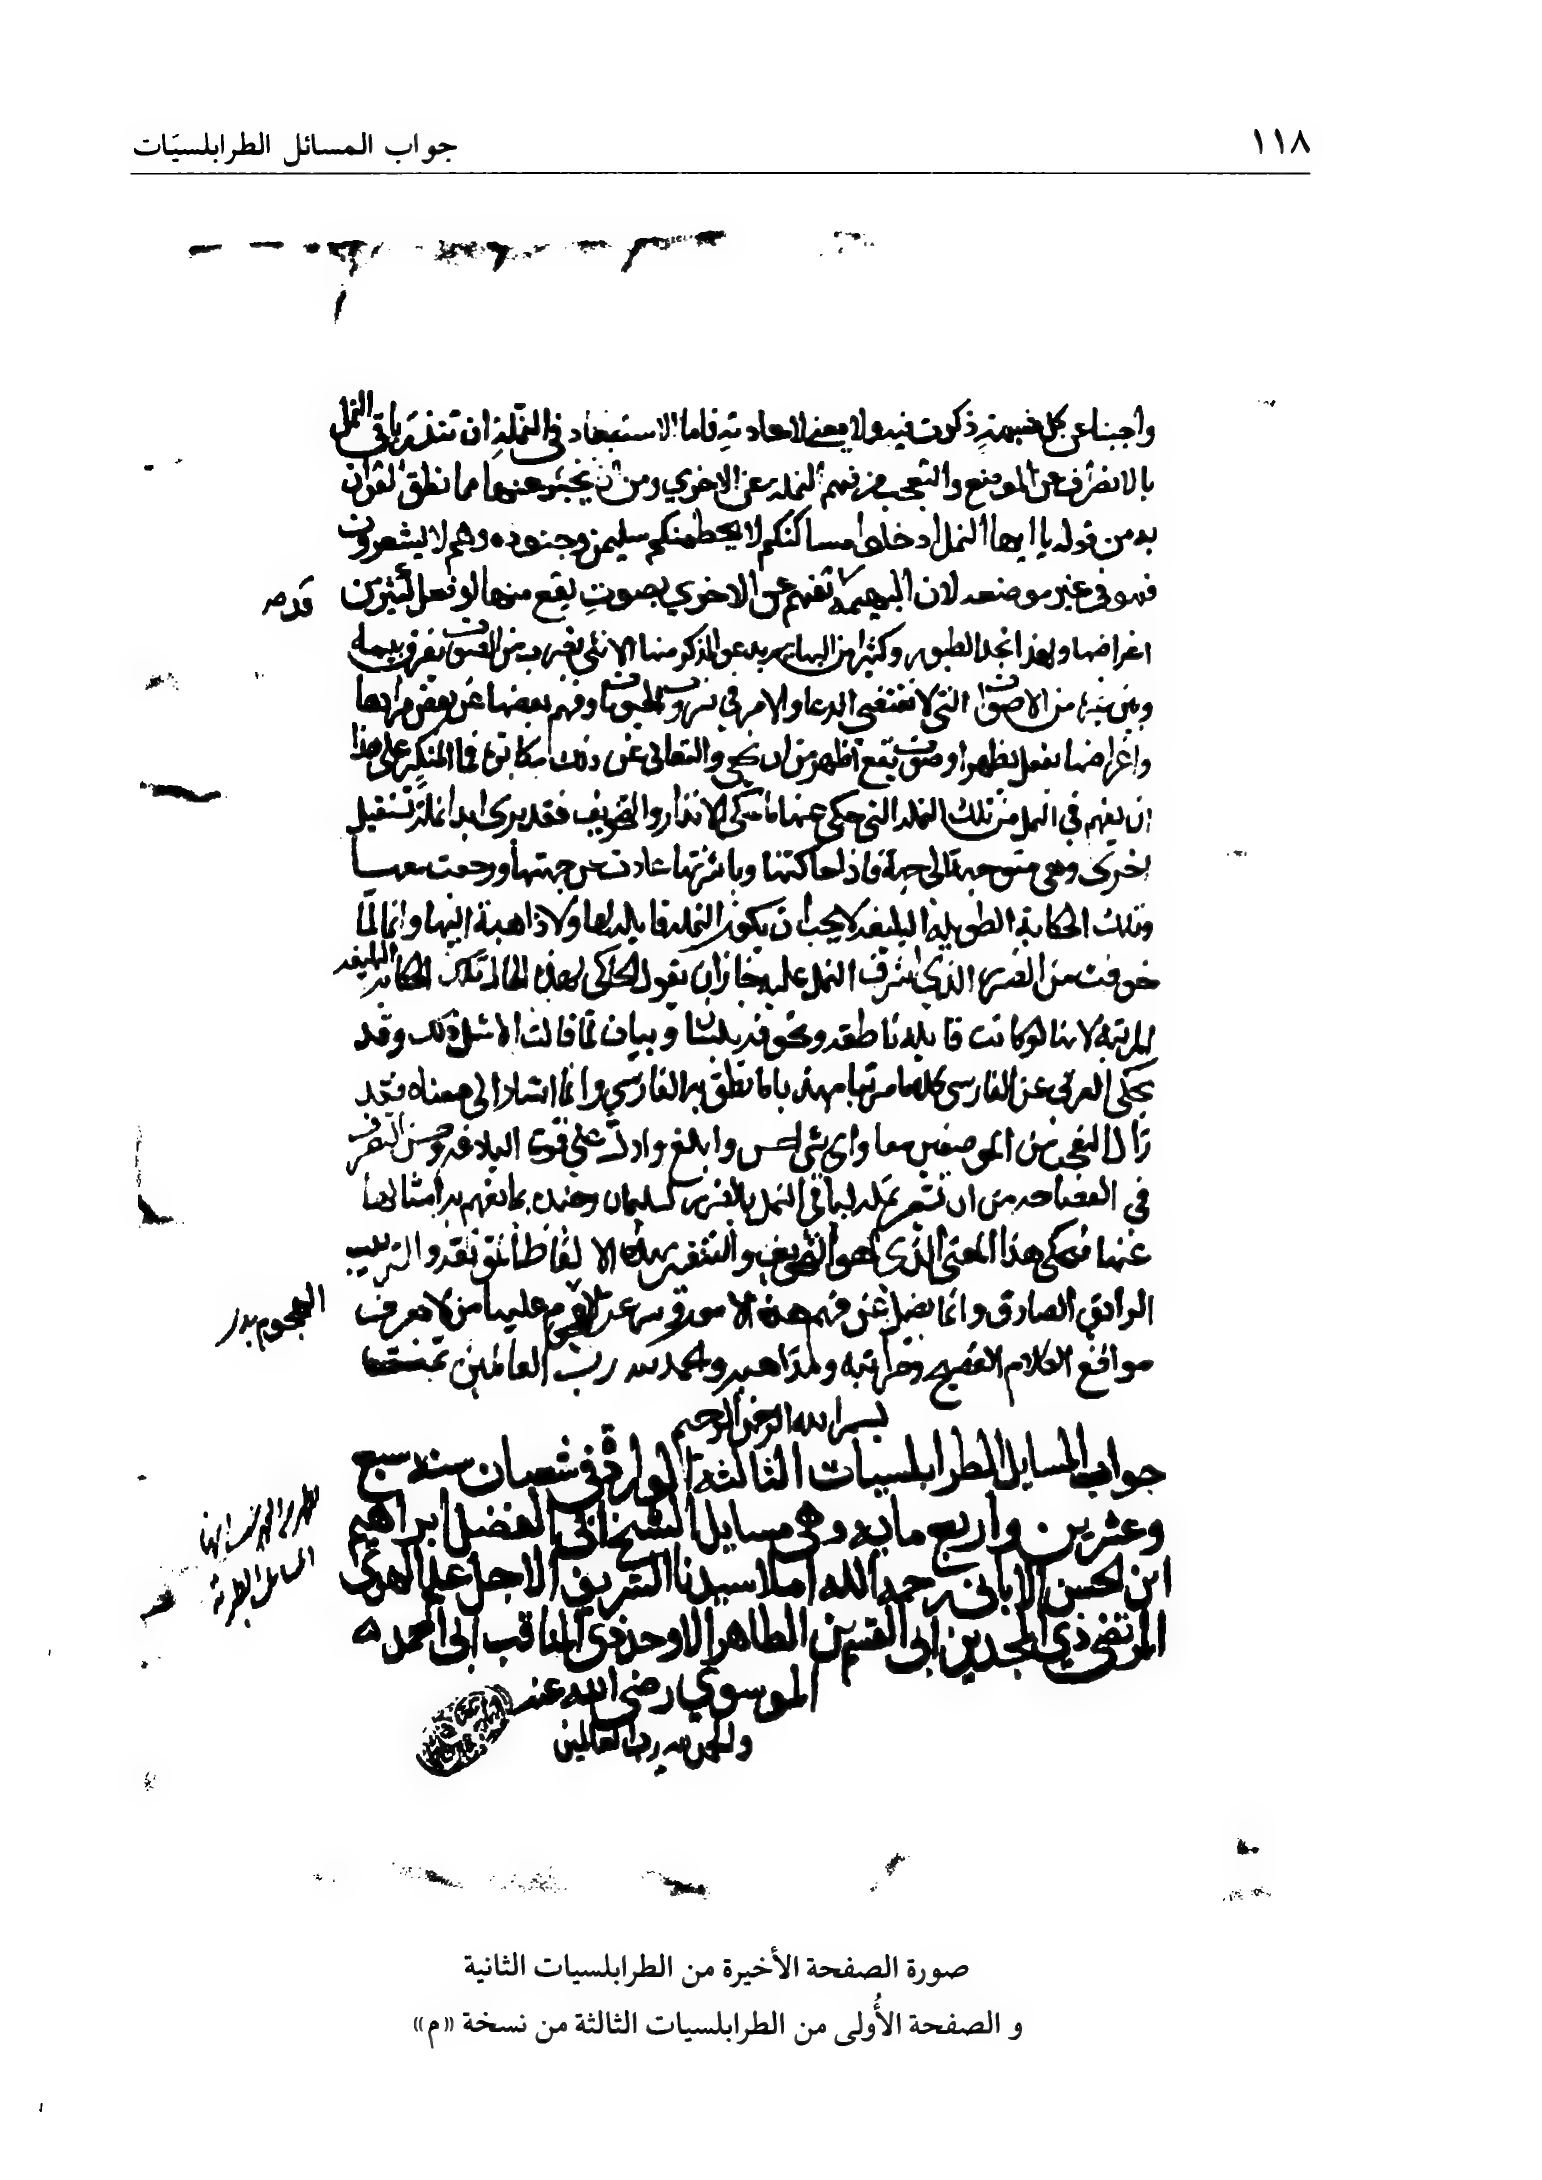 ١١٨
جواب المسائل الطرابلسيّات
واجبنا عن كل شبهة ذكرت فيه ولا معنى لاعادته فاما الاستبعاد في النملة ان تنذر باقي النمل
بالانصراف عن الموضع والتعجب من فهم النملة عن الاخرى ومن ان يخبر عنها مما نطق القران
به من قوله يا ايها النمل ادخلوا مساكنكم لا يحطمنكم سليمن وجنوده وهم لا يشعرون
فهو في غير موضعه لان البهيمة قد تفهم عن الاخرى بصوت يقع منها او فعل كثيرا من
اغراضها ولهذا نجد الطيور وكثيرا من البهايم يدعو الذكر منها الانثى بضرب من الصوت يفرق بينه
وبين غيره من الاصوات التي لا تقتضي الدعا والامر في ضروب الحيوانات وفهم بعضها عن بعض مرادها
واغراضها بفعل يظهر او صوت يقع اظهر من ان يخفى والتغابي عن ذلك مكابرة فما المنكر على هذا
ان يفهم في النمل من تلك النملة التي حكي عنها ما حكي الانذار والتخويف فقد يرى ابدا نملة تستقبل
اخرى وهي متوجهة الى جهة فاذا حاكتها وباشرتها عادت عن جهتها ورجعت معها
وتلك الحكاية الطويلة البليغة لا يجب ان يكون النملة قايلة لها ولا ذاهبة اليها وانها لما
خوفت من الضرر الذي اشرف النمل عليه جاز ان يقول الحاكي لهذه الحال تلك الحكاية البليغة
المرتبة لانها لو كانت قايلة ناطقة ومخوفة بلسان وبيان لما قالت الا مثل ذلك وقد
يحكي العربي عن الفارسي كلاما مرتبا مهذبا ما نطق به الفارسي وانما اشار الى معناه فقد
زال التعجب من الموضعين معا واي شي احسن وابلغ وادل على قوة البلاغة وحسن التصرف
في الفصاحة من ان تشعر نملة لباقي النمل بالضرر لسليمان وجنده بما تفهم به امثالها
عنها فيحكي هذا المعنى الذي هو التخويف والتنفير بهذه الالفاظ المونقة والترتيب
الرايق الصادق وانما يضل عن فهم هذه الامور وسرعة الهجوم عليها من لا يعرف
مواقع الكلام الفصيح ومراتبه ومذاهبه والحمد لله رب العالمين
الهجوم بدر
بسم الله الرحمن الرحيم
جواب المسايل الطرابلسيات الثالثة الواردة في شعبان سنة سبع
وعشرين واربع مايه وهي مسايل الشيخ ابي الفضل ابراهيم
ابن الحسن الاباني رحمه الله املا سيدنا الشريف الاجل علم الهدى
المرتضى ذي المجدين ابي القسم بن الطاهر الاوحد ذي المناقب ابي احمد
الموسوي رضي الله عنه
والحمد لله رب العالمين
صورة الصفحة الأخيرة من الطرابلسيات الثانية
و الصفحة الأُولى من الطرابلسيات الثالثة من نسخة «م»